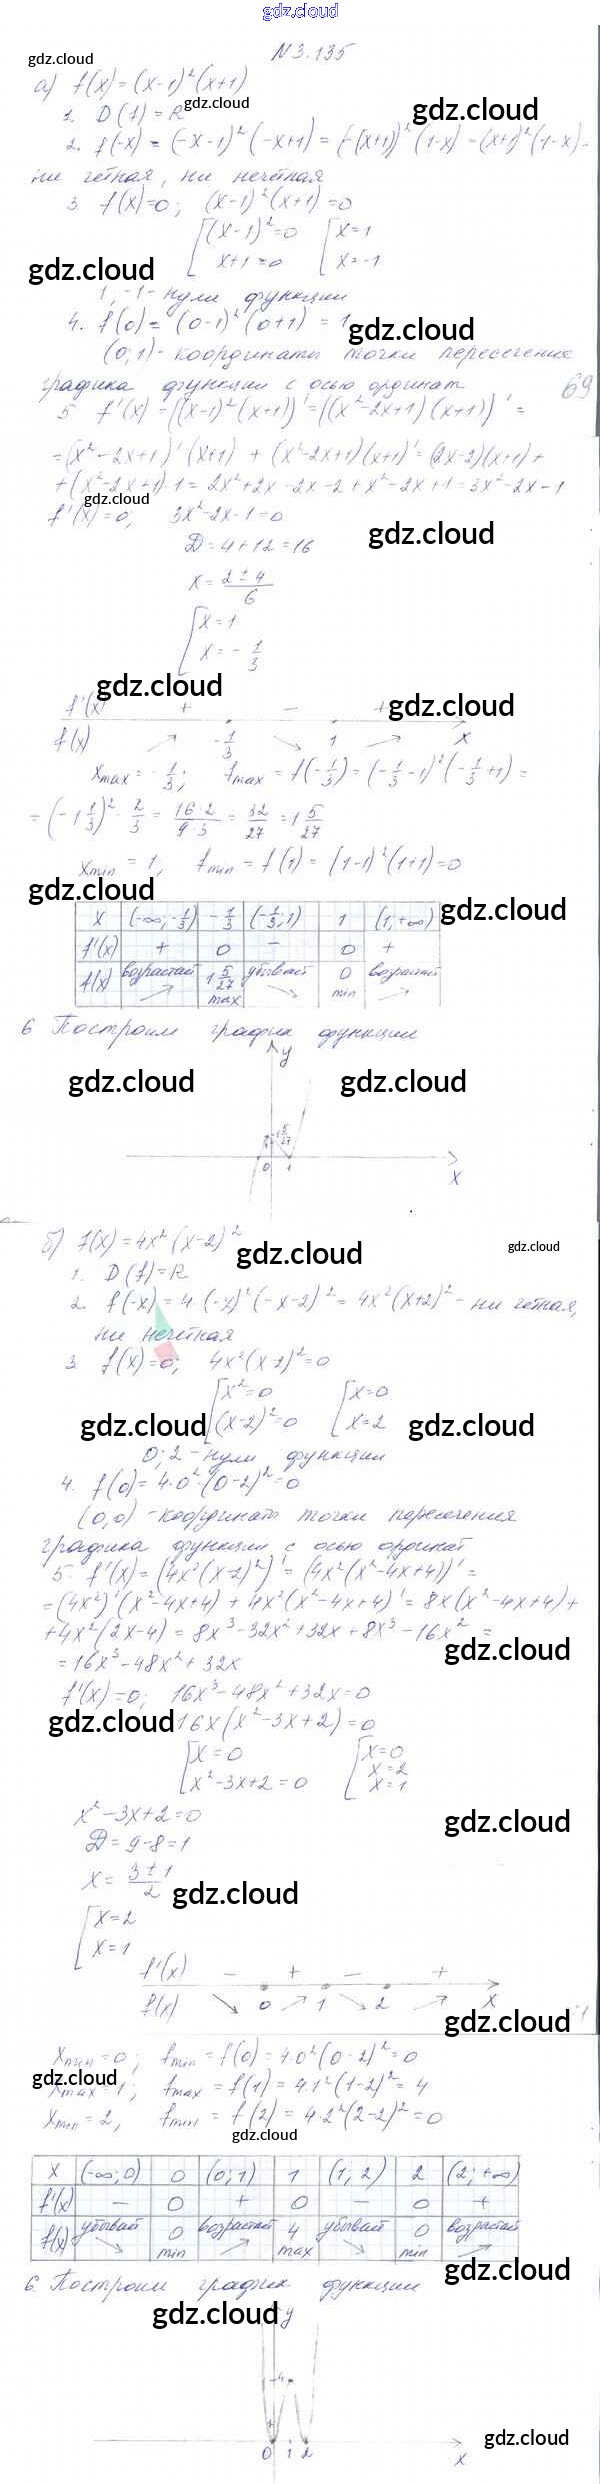 gdz.cloud
N 3.135
gdz.cloud
а) f(x) = (x-1)²(x+1)
gdz.cloud
gdz.cloud
1. D(f) = R
2. f(-x) = (-x-1)²(-x+1) = (-(x+1))²(1-x) = (x+1)²(1-x) -
ни чётная, ни нечётная
3. f(x)=0; (x-1)²(x+1)=0
[(x-1)²=0 [x=1
x+1=0 x=-1
gdz.cloud
1, -1 - нули функции
4. f(0) = (0-1)²(0+1) = 1
gdz.cloud
(0;1) - координаты точки пересечение
графика функции с осью ординат
69
5 f'(x) = ((x-1)²(x+1))' = ((x²-2x+1)(x+1))' =
= (x²-2x+1)'(x+1) + (x²-2x+1)(x+1)' = (2x-2)(x+1) +
+(x²-2x+1)·1 = 2x²+2x-2x-2+x²-2x+1 = 3x²-2x-1
gdz.cloud
f'(x)=0; 3x²-2x-1=0
gdz.cloud
D = 4+12 = 16
x = (2±4)/6
[x=1
x = -1/3
gdz.cloud
f'(x) + - +
gdz.cloud
f(x) -1/3 1 x
x max = -1/3; f max = f(-1/3) = (-1/3-1)²(-1/3+1) =
= (-1 1/3)² · 2/3 = (16·2)/(9·3) = 32/27 = 1 5/27
x min = 1, f min = f(1) = (1-1)²(1+1) = 0
gdz.cloud
gdz.cloud
x (-∞;-1/3) -1/3 (-1/3;1) 1 (1;+∞)
f'(x) + 0 - 0 +
f(x) возрастает 1 5/27 max убывает 0 min возрастает
6 Построим график функции
y
gdz.cloud
gdz.cloud
1 5/27
0 1 x
б) f(x) = 4x²(x-2)²
gdz.cloud
gdz.cloud
1. D(f) = R
2. f(-x) = 4·(-x)²(-x-2)² = 4x²(x+2)² - ни чётная,
ни нечётная
3 f(x)=0; 4x²(x-2)²=0
[x²=0 [x=0
(x-2)²=0 x=2
gdz.cloud
gdz.cloud
0; 2 - нули функции
4. f(0) = 4·0²·(0-2)² = 0
(0;0) - координаты точки пересечения
графика функции с осью ординат
5. f'(x) = (4x²(x-2)²)' = (4x²(x²-4x+4))' =
= (4x²)'(x²-4x+4) + 4x²(x²-4x+4)' = 8x(x²-4x+4) +
+4x²(2x-4) = 8x³-32x²+32x+8x³-16x² =
gdz.cloud
= 16x³-48x²+32x
f'(x)=0; 16x³-48x²+32x=0
gdz.cloud
16x(x²-3x+2)=0
[x=0 [x=0
x²-3x+2=0 x=2
x=1
x²-3x+2=0
gdz.cloud
D = 9-8 = 1
x = (3±1)/2
gdz.cloud
[x=2
x=1
f'(x) - + - +
f(x) 0 1 2 x
gdz.cloud
x min = 0; f min = f(0) = 4·0²(0-2)² = 0
gdz.cloud
x max = 1; f max = f(1) = 4·1²(1-2)² = 4
x min = 2, f min = f(2) = 4·2²(2-2)² = 0
gdz.cloud
x (-∞;0) 0 (0;1) 1 (1;2) 2 (2;+∞)
f'(x) - 0 + 0 - 0 +
f(x) убывает 0 min возрастает 4 max убывает 0 min возрастает
gdz.cloud
6. Построим график функции
gdz.cloud
y
4
gdz.cloud
0 1 2 x